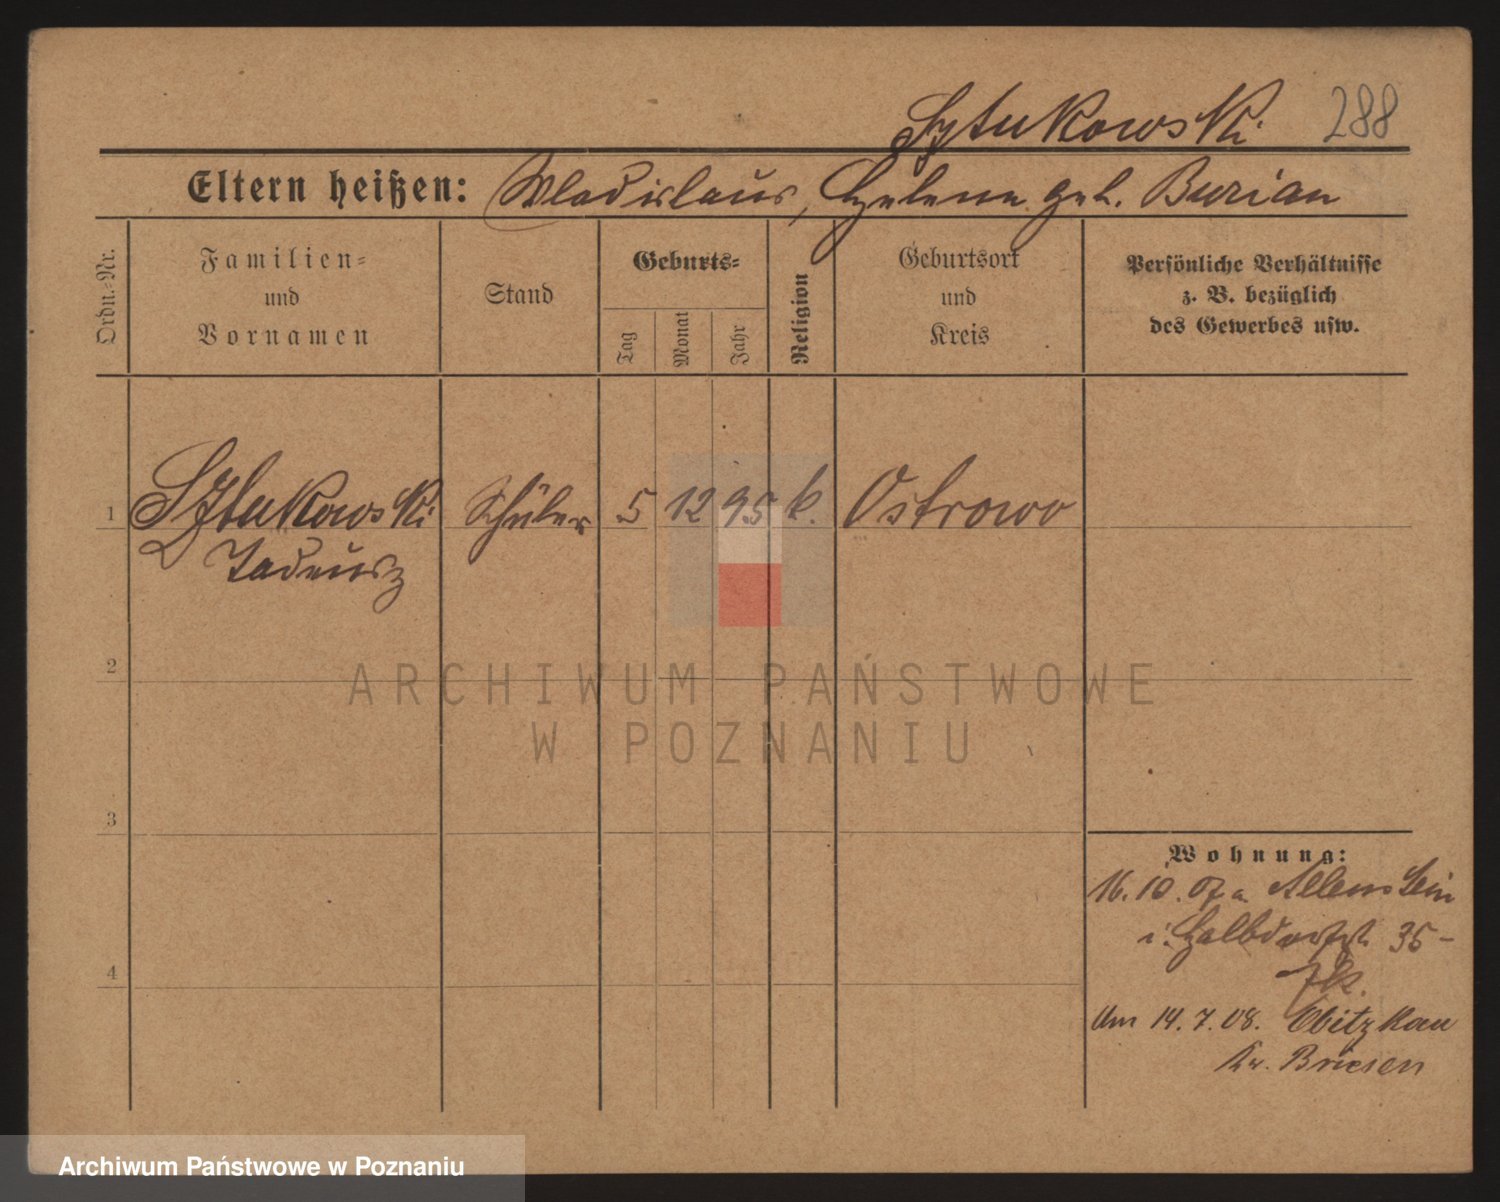 Sztukowski 288
Eltern heißen: Wladislaus, Helene geb. Burian
Ordn.-Nr.
Familien- und Vornamen
Stand
Geburts-
Tag
Monat
Jahr
Religion
Geburtsort und Kreis
Persönliche Verhältnisse
z. B. bezüglich
des Gewerbes usw.
1 Sztukowski Schüler 5 12 95 k. Ostrowo
Tadeusz
2
3
4
Wohnung:
16.10.07 a Allenstein
i. Halbdorfstr. 35-
Um 14.7.08.
Kr. Briesen
ARCHIWUM PAŃSTWOWE
W POZNANIU
Archiwum Państwowe w Poznaniu